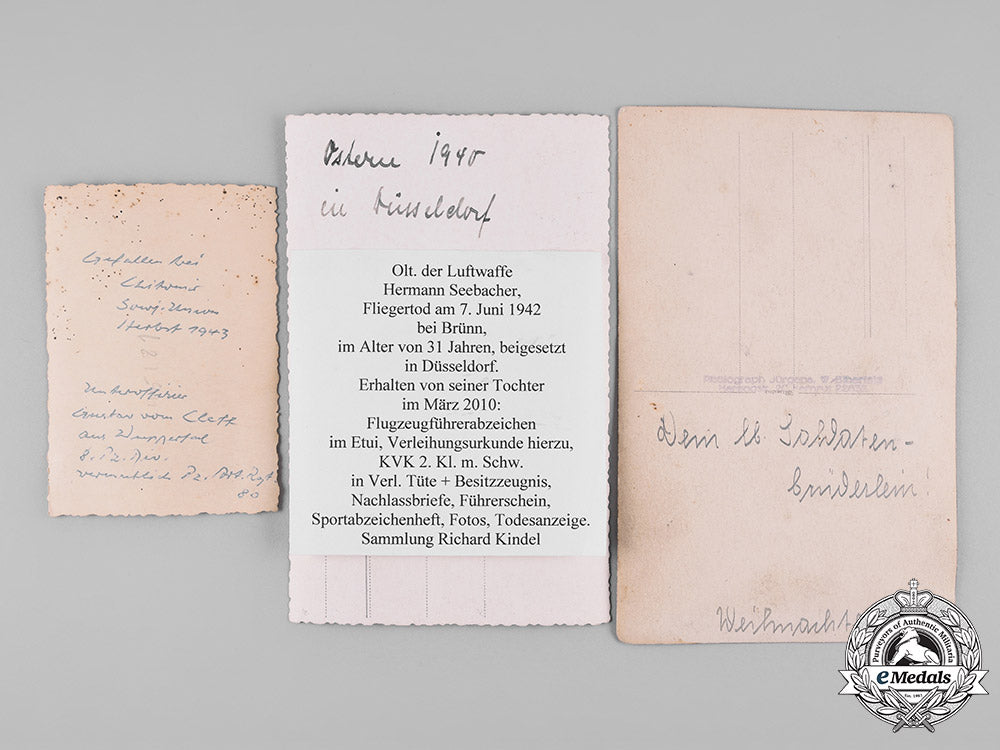 Gefallen bei
Sowj. Union
Herbst 1943
Unteroffizier
Gustav vom Cleff
aus Wuppertal
8. Pz. Div.
vermutlich Pz. Art. Rgt.
80
Ostern 1940
in Düsseldorf
Olt. der Luftwaffe
Hermann Seebacher,
Fliegertod am 7. Juni 1942
bei Brünn,
im Alter von 31 Jahren, beigesetzt
in Düsseldorf.
Erhalten von seiner Tochter
im März 2010:
Flugzeugführerabzeichen
im Etui, Verleihungsurkunde hierzu,
KVK 2. Kl. m. Schw.
in Verl. Tüte + Besitzzeugnis,
Nachlassbriefe, Führerschein,
Sportabzeichenheft, Fotos, Todesanzeige.
Sammlung Richard Kindel
Photograph Jürgens, W.-Elberfeld
Dein lb. Soldaten-
brüderlein!
Weihnacht
Purveyors of Authentic Militaria
eMedals